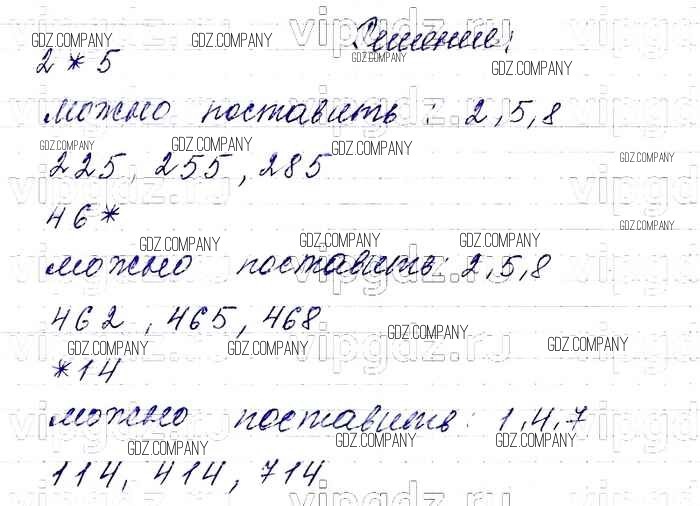 Решение:
2 * 5
можно поставить : 2, 5, 8
225, 255, 285
46*
можно поставить: 2, 5, 8
462, 465, 468
*14
можно поставить: 1, 4, 7
114, 414, 714
GDZ.COMPANY
vipgdz.ru